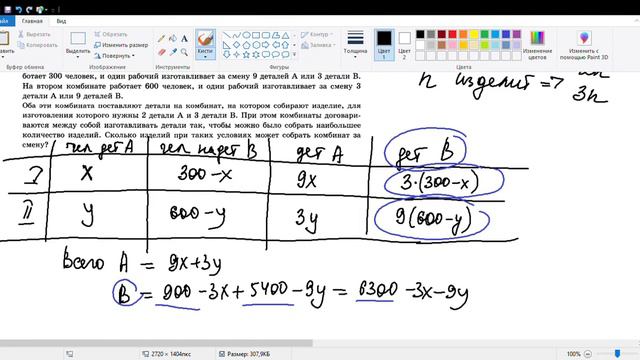 Выделить
Изменить размер
Повернуть
Кисти
Контур
Заливка
Толщина
Цвет 1
Цвет 2
Изменение цветов
Изменить с помощью Paint 3D
ботает 300 человек, и один рабочий изготавливает за смену 9 деталей А или 3 детали В.
На втором комбинате работает 600 человек, и один рабочий изготавливает за смену 3
детали А или 9 деталей В.
Оба эти комбината поставляют детали на комбинат, на котором собирают изделие, для
изготовления которого нужны 2 детали А и 3 детали В. При этом комбинаты договари-
ваются между собой изготавливать детали так, чтобы можно было собрать наибольшее
количество изделий. Сколько изделий при таких условиях может собрать комбинат за
смену?
n изделий =>
3n
чел дет А чел на дет В дет А дет В
I x 300-x 9x 3·(300-x)
II y 600-y 3y 9(600-y)
Всего A = 9x+3y
B = 900-3x+5400-9y = 6300-3x-9y
2720 × 1404пкс
Размер: 307,9КБ
100%